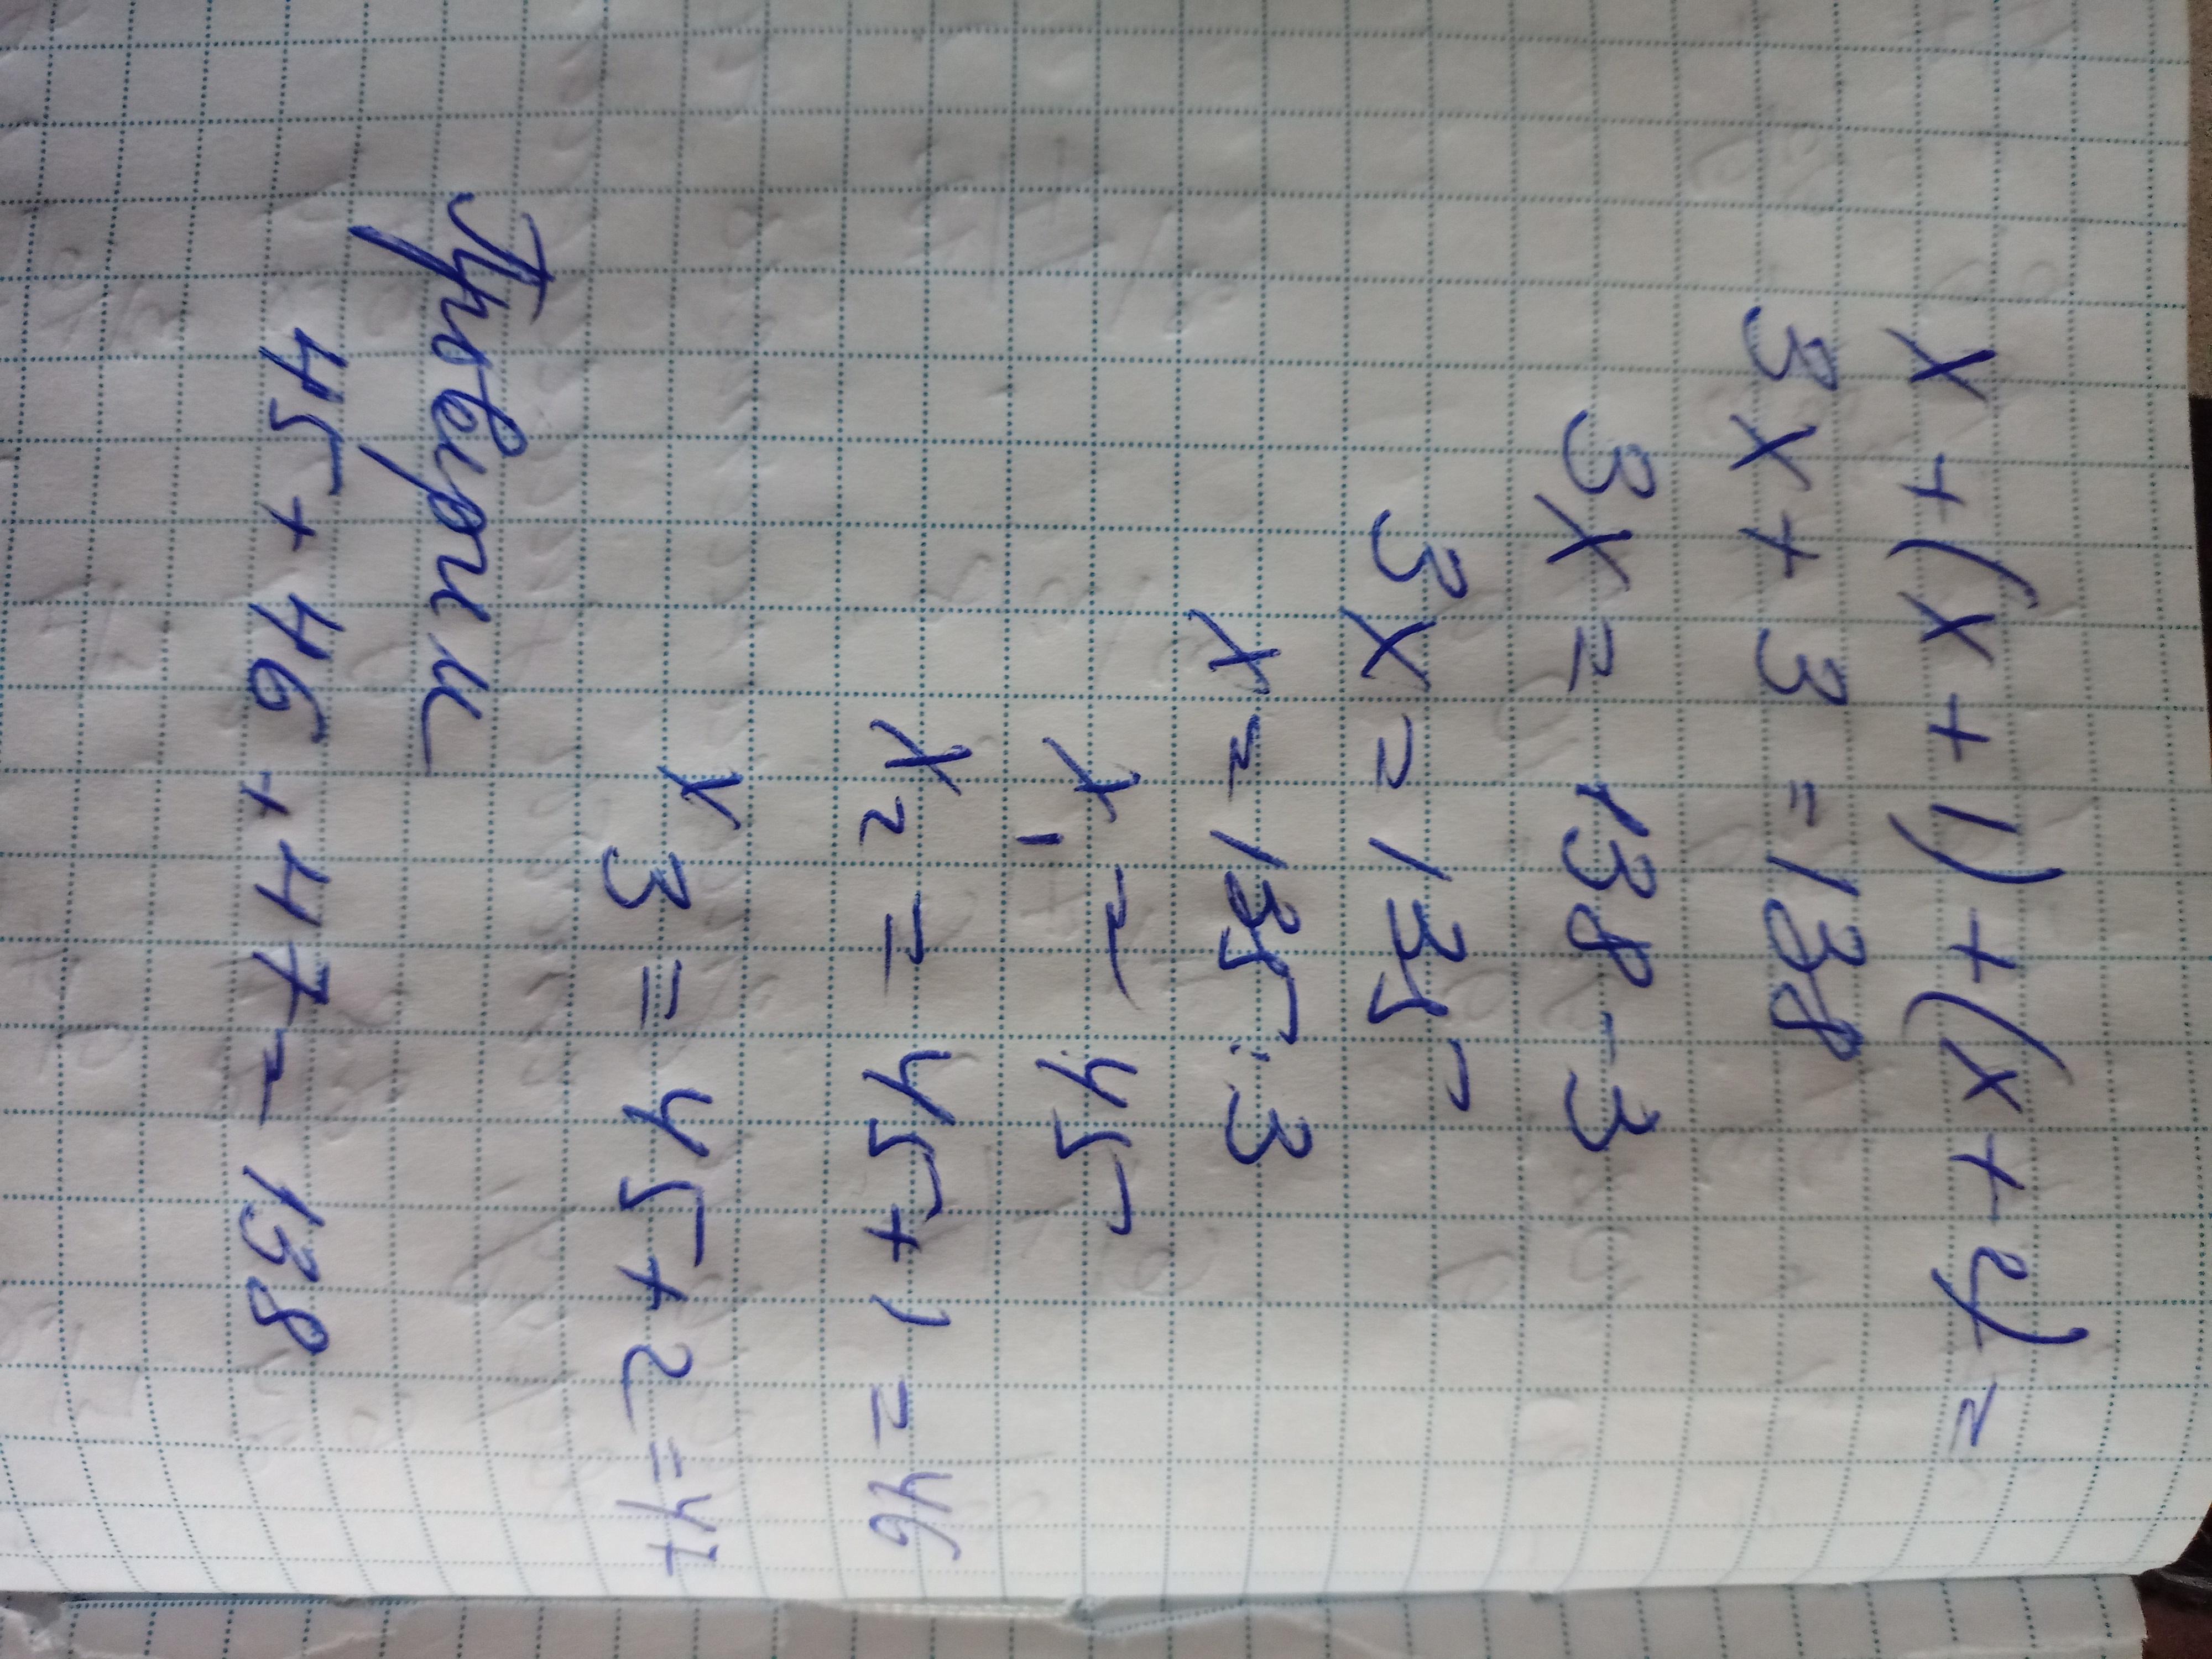 x + (x + 1) + (x + 2) =
3x + 3 = 138
3x = 138 - 3
3x = 135
x = 135 : 3
x₁ = 45
x₂ = 45 + 1 = 46
x₃ = 45 + 2 = 47
Проверим
45 + 46 + 47 = 138